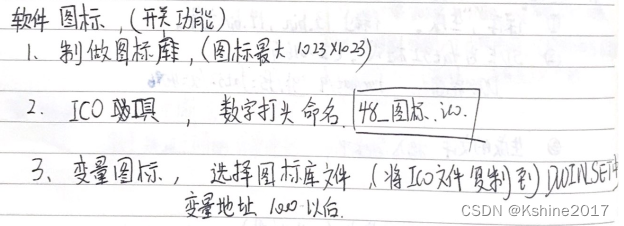 软件图标,(开关功能)
1、制做图标库,(图标最大 1023×1023)
2. ICO 工具 , 数字打头命名. 48_图标.ico.
3、变量图标, 选择图标库文件 (将ICO文件复制到) DWINSET中
变量地址 1000 以后.
CSDN @Kshine2017